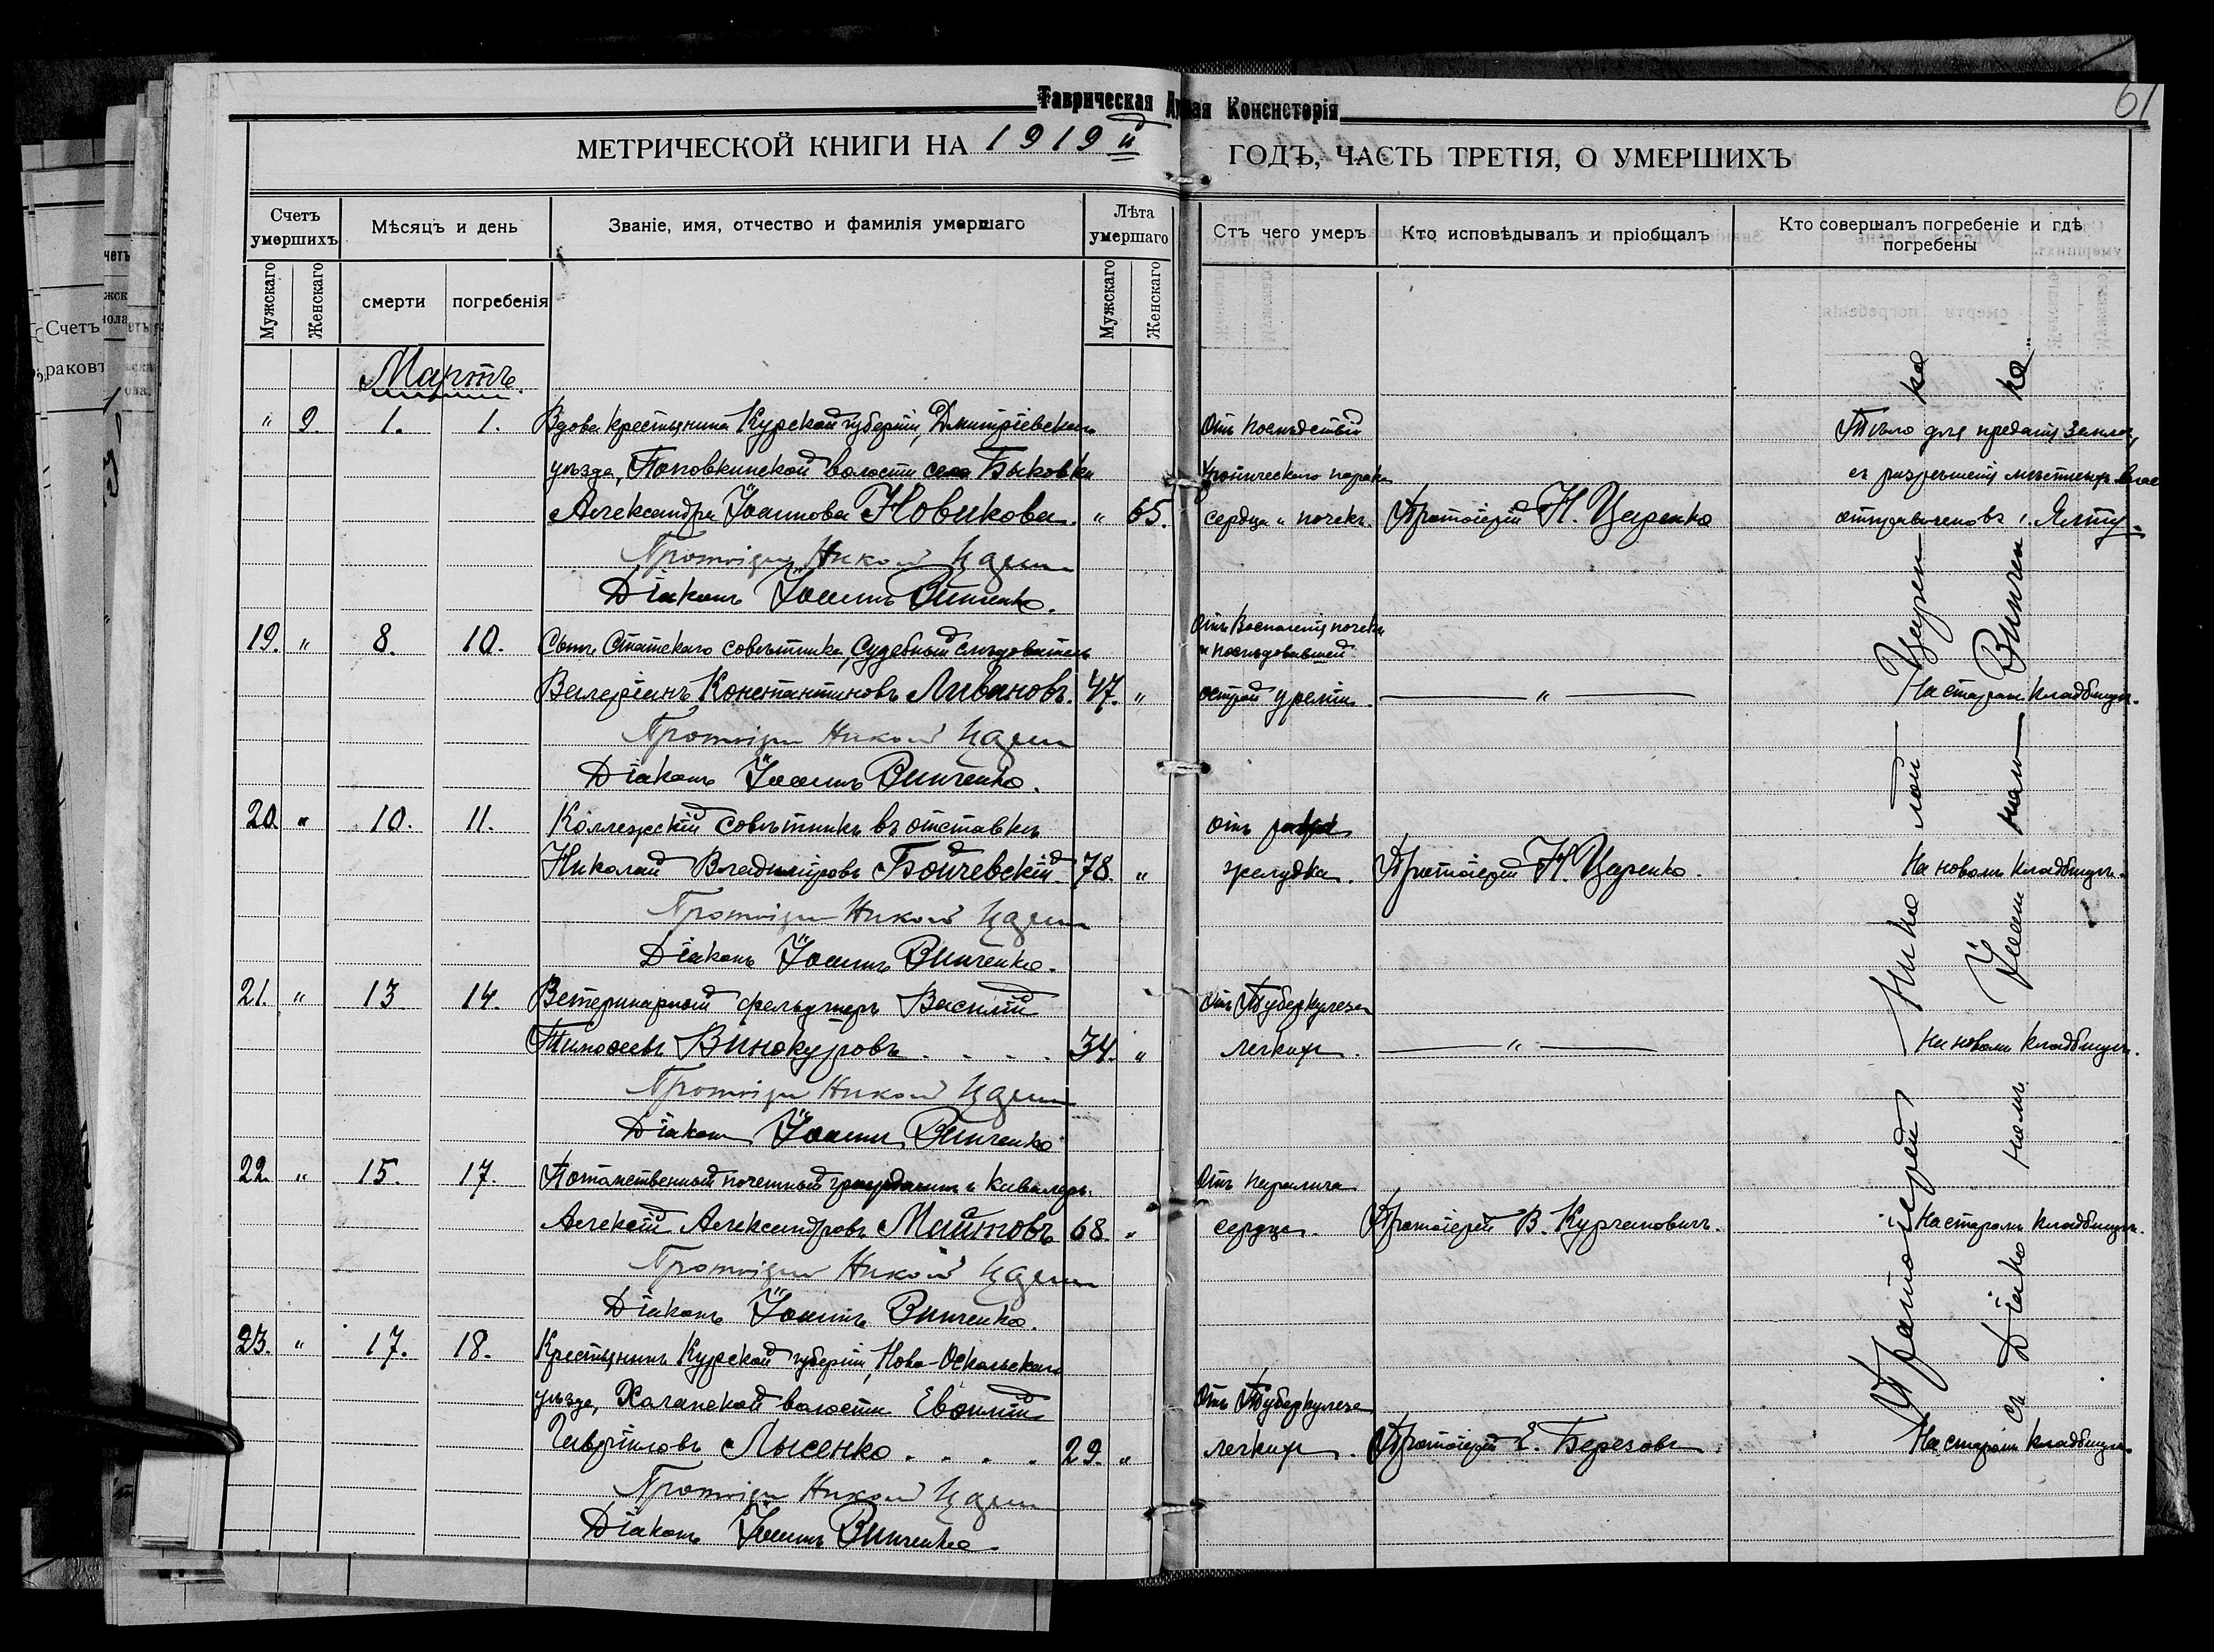 Таврическая Консисторія
61
МЕТРИЧЕСКОЙ КНИГИ НА 1919й ГОДЪ, ЧАСТЬ ТРЕТІЯ, О УМЕРШИХЪ
Счетъ умершихъ
Мѣсяцъ и день
Званіе, имя, отчество и фамилія умершаго
Лѣта умершаго
Отъ чего умеръ
Кто исповѣдывалъ и пріобщалъ
Кто совершалъ погребеніе и гдѣ погребены
Мужскаго Женскаго смерти погребенія Мужскаго Женскаго
Мартъ.
" 9. 1. 1. Вдова крестьянина Курской губерніи, Дмитріевскаго Отъ послѣдствій Тѣло для преданія землѣ,
уѣзда, Поповкинской волости села Быковки хроническаго порока съ разрѣшенія мѣстныхъ
Александра Іоаннова Новикова. " 65. сердца и почекъ. Протоіерей Н. Царенко отправлено въ г. Ялту.
Протоіерей Николай Царенко
Діаконъ Іоаннъ Винченко.
19. " 8. 10. Сынъ Статскаго совѣтника, Судебный слѣдователь Отъ Воспаленія почекъ
и послѣдовавшей
Валеріанъ Константиновъ Ливановъ. 47. " острой уреміи. — " — На старомъ кладбищѣ.
Протоіерей Николай Царенко
Діаконъ Іоаннъ Винченко.
20. " 10. 11. Коллежскій совѣтникъ въ отставкѣ отъ рака
Николай Владиміровъ Бойчевскій. 78. " желудка. Протоіерей Н. Царенко. На новомъ кладбищѣ.
Протоіерей Николай Царенко
Діаконъ Іоаннъ Винченко.
21. " 13 14. Ветеринарный фельдшеръ Василій Отъ Туберкулеза
Тимофеевъ Винокуровъ . . . . 34. " легкихъ. — " — На новомъ кладбищѣ.
Протоіерей Николай Царенко
Діаконъ Іоаннъ Винченко
22. " 15. 17. Потомственный почетный гражданинъ и кавалеръ. Отъ паралича
Алексѣй Александровъ Маштовъ 68. " сердца. Протоіерей В. Курчановичъ. На старомъ кладбищѣ.
Протоіерей Николай Царенко
Діаконъ Іоаннъ Винченко.
23. " 17. 18. Крестьянинъ Курской губерніи, Ново-Оскольскаго
уѣзда, Халанской волости Отъ Туберкулеза
Гавріиловъ Лысенко . . . . 29. " легкихъ. Протоіерей Е. Березовъ На старомъ кладбищѣ
Протоіерей Николай Царенко
Діаконъ Іоаннъ Винченко
Протоіерей Николай Царенко
съ Діакономъ Іоанномъ Винченко